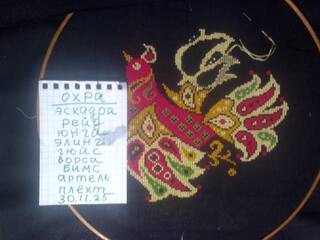 ОХРА
эскадра
рейд
юнга
эллинг
гюйс
ворса
бимс
артель
плехт
30.11.25